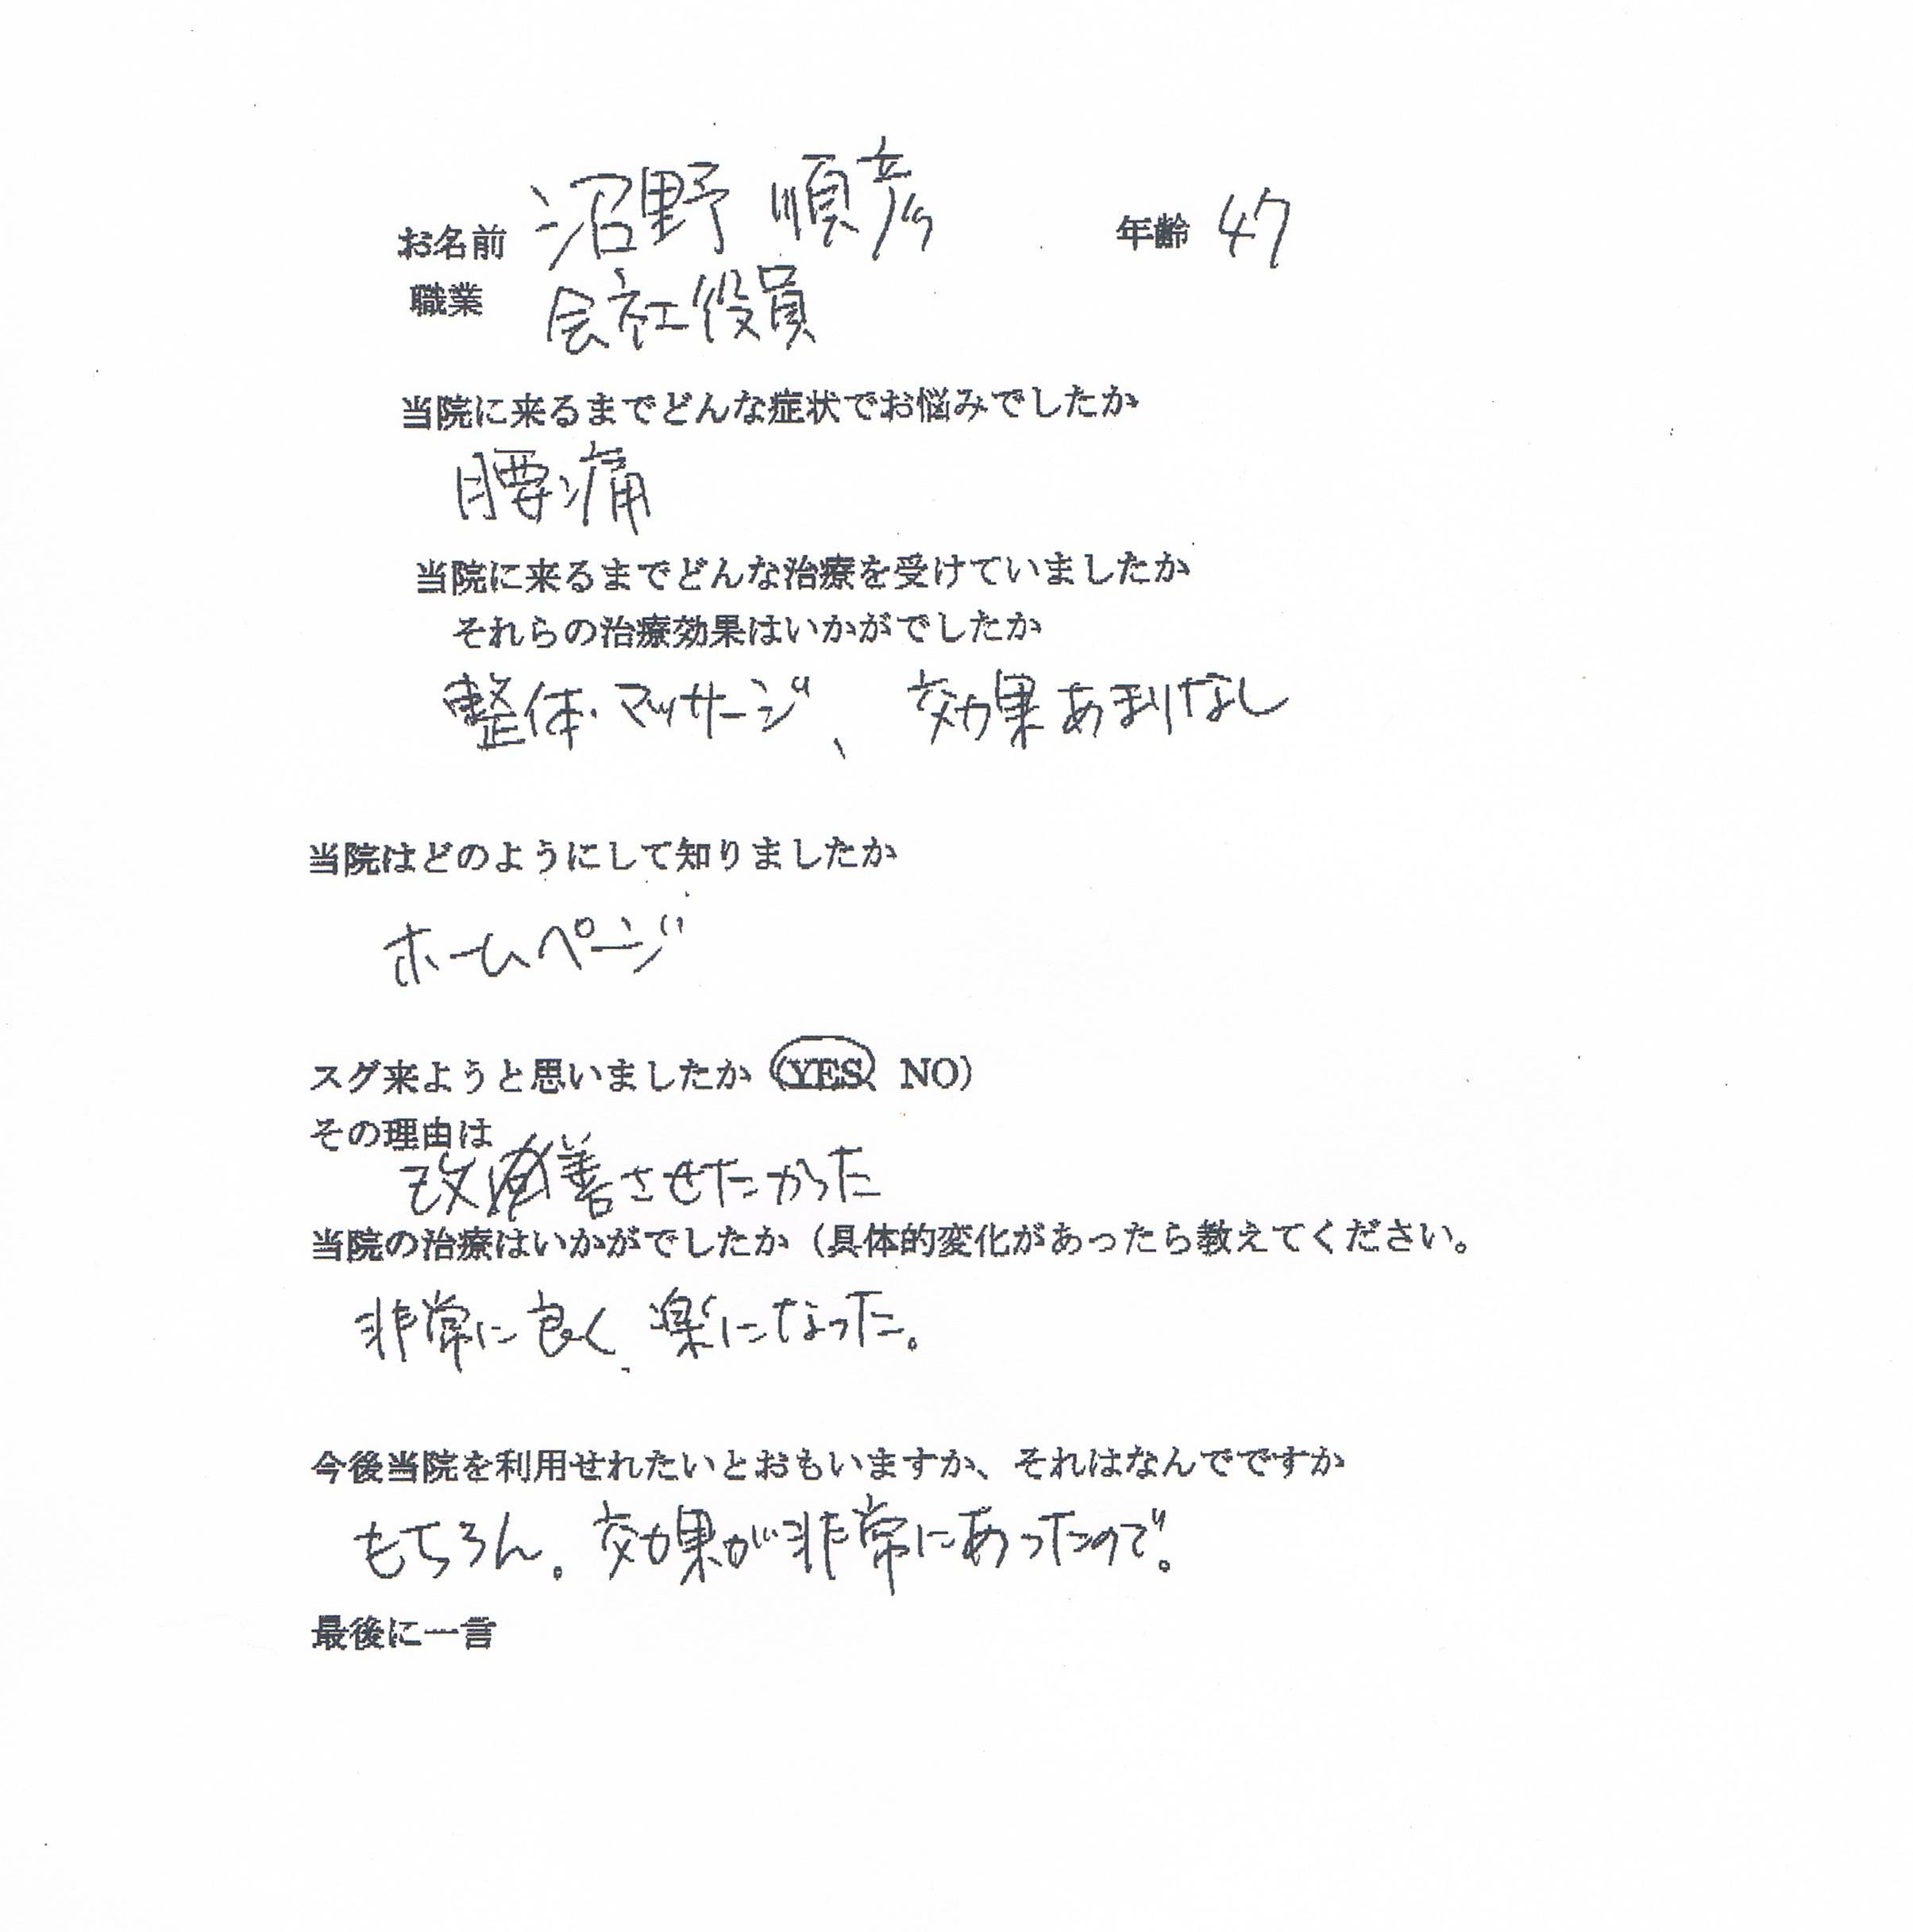 お名前 沼野 順彦 年齢 47
職業 会社役員
当院に来るまでどんな症状でお悩みでしたか
腰痛
当院に来るまでどんな治療を受けていましたか
それらの治療効果はいかがでしたか
整体・マッサージ、 効果あまりなし
当院はどのようにして知りましたか
ホームページ
スグ来ようと思いましたか (YES NO)
その理由は
改善させたかった
当院の治療はいかがでしたか (具体的変化があったら教えてください。
非常に良く、楽になった。
今後当院を利用せれたいとおもいますか、それはなんでですか
もちろん。効果が非常にあったので。
最後に一言